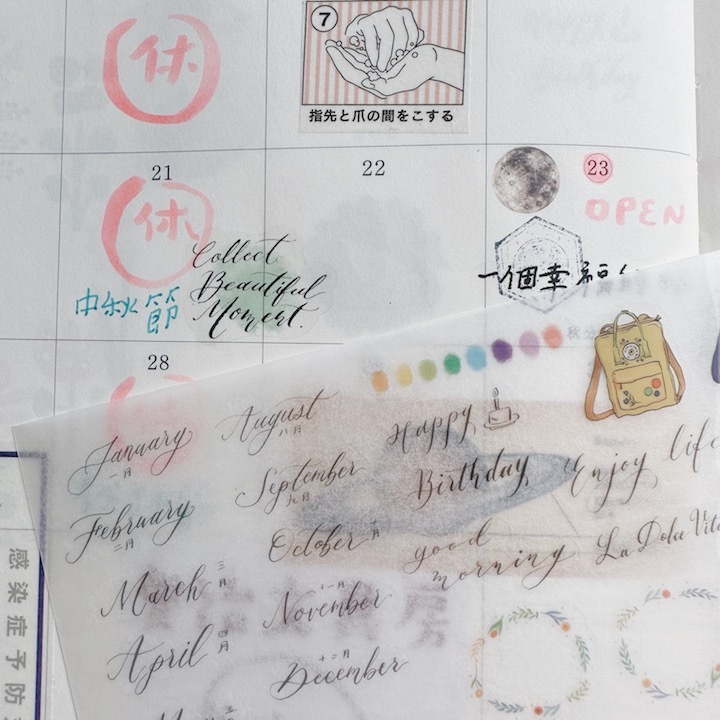 休
⑦
指先と爪の間をこする
21
22
23
休
OPEN
中秋節
Collect
Beautiful
Moment.
一個幸福
28
January
一月
February
二月
March
三月
April
四月
August
八月
September
九月
October
十月
November
十一月
December
十二月
Happy
Birthday
good
morning
Enjoy life
La Dolce Vita
感染症予防